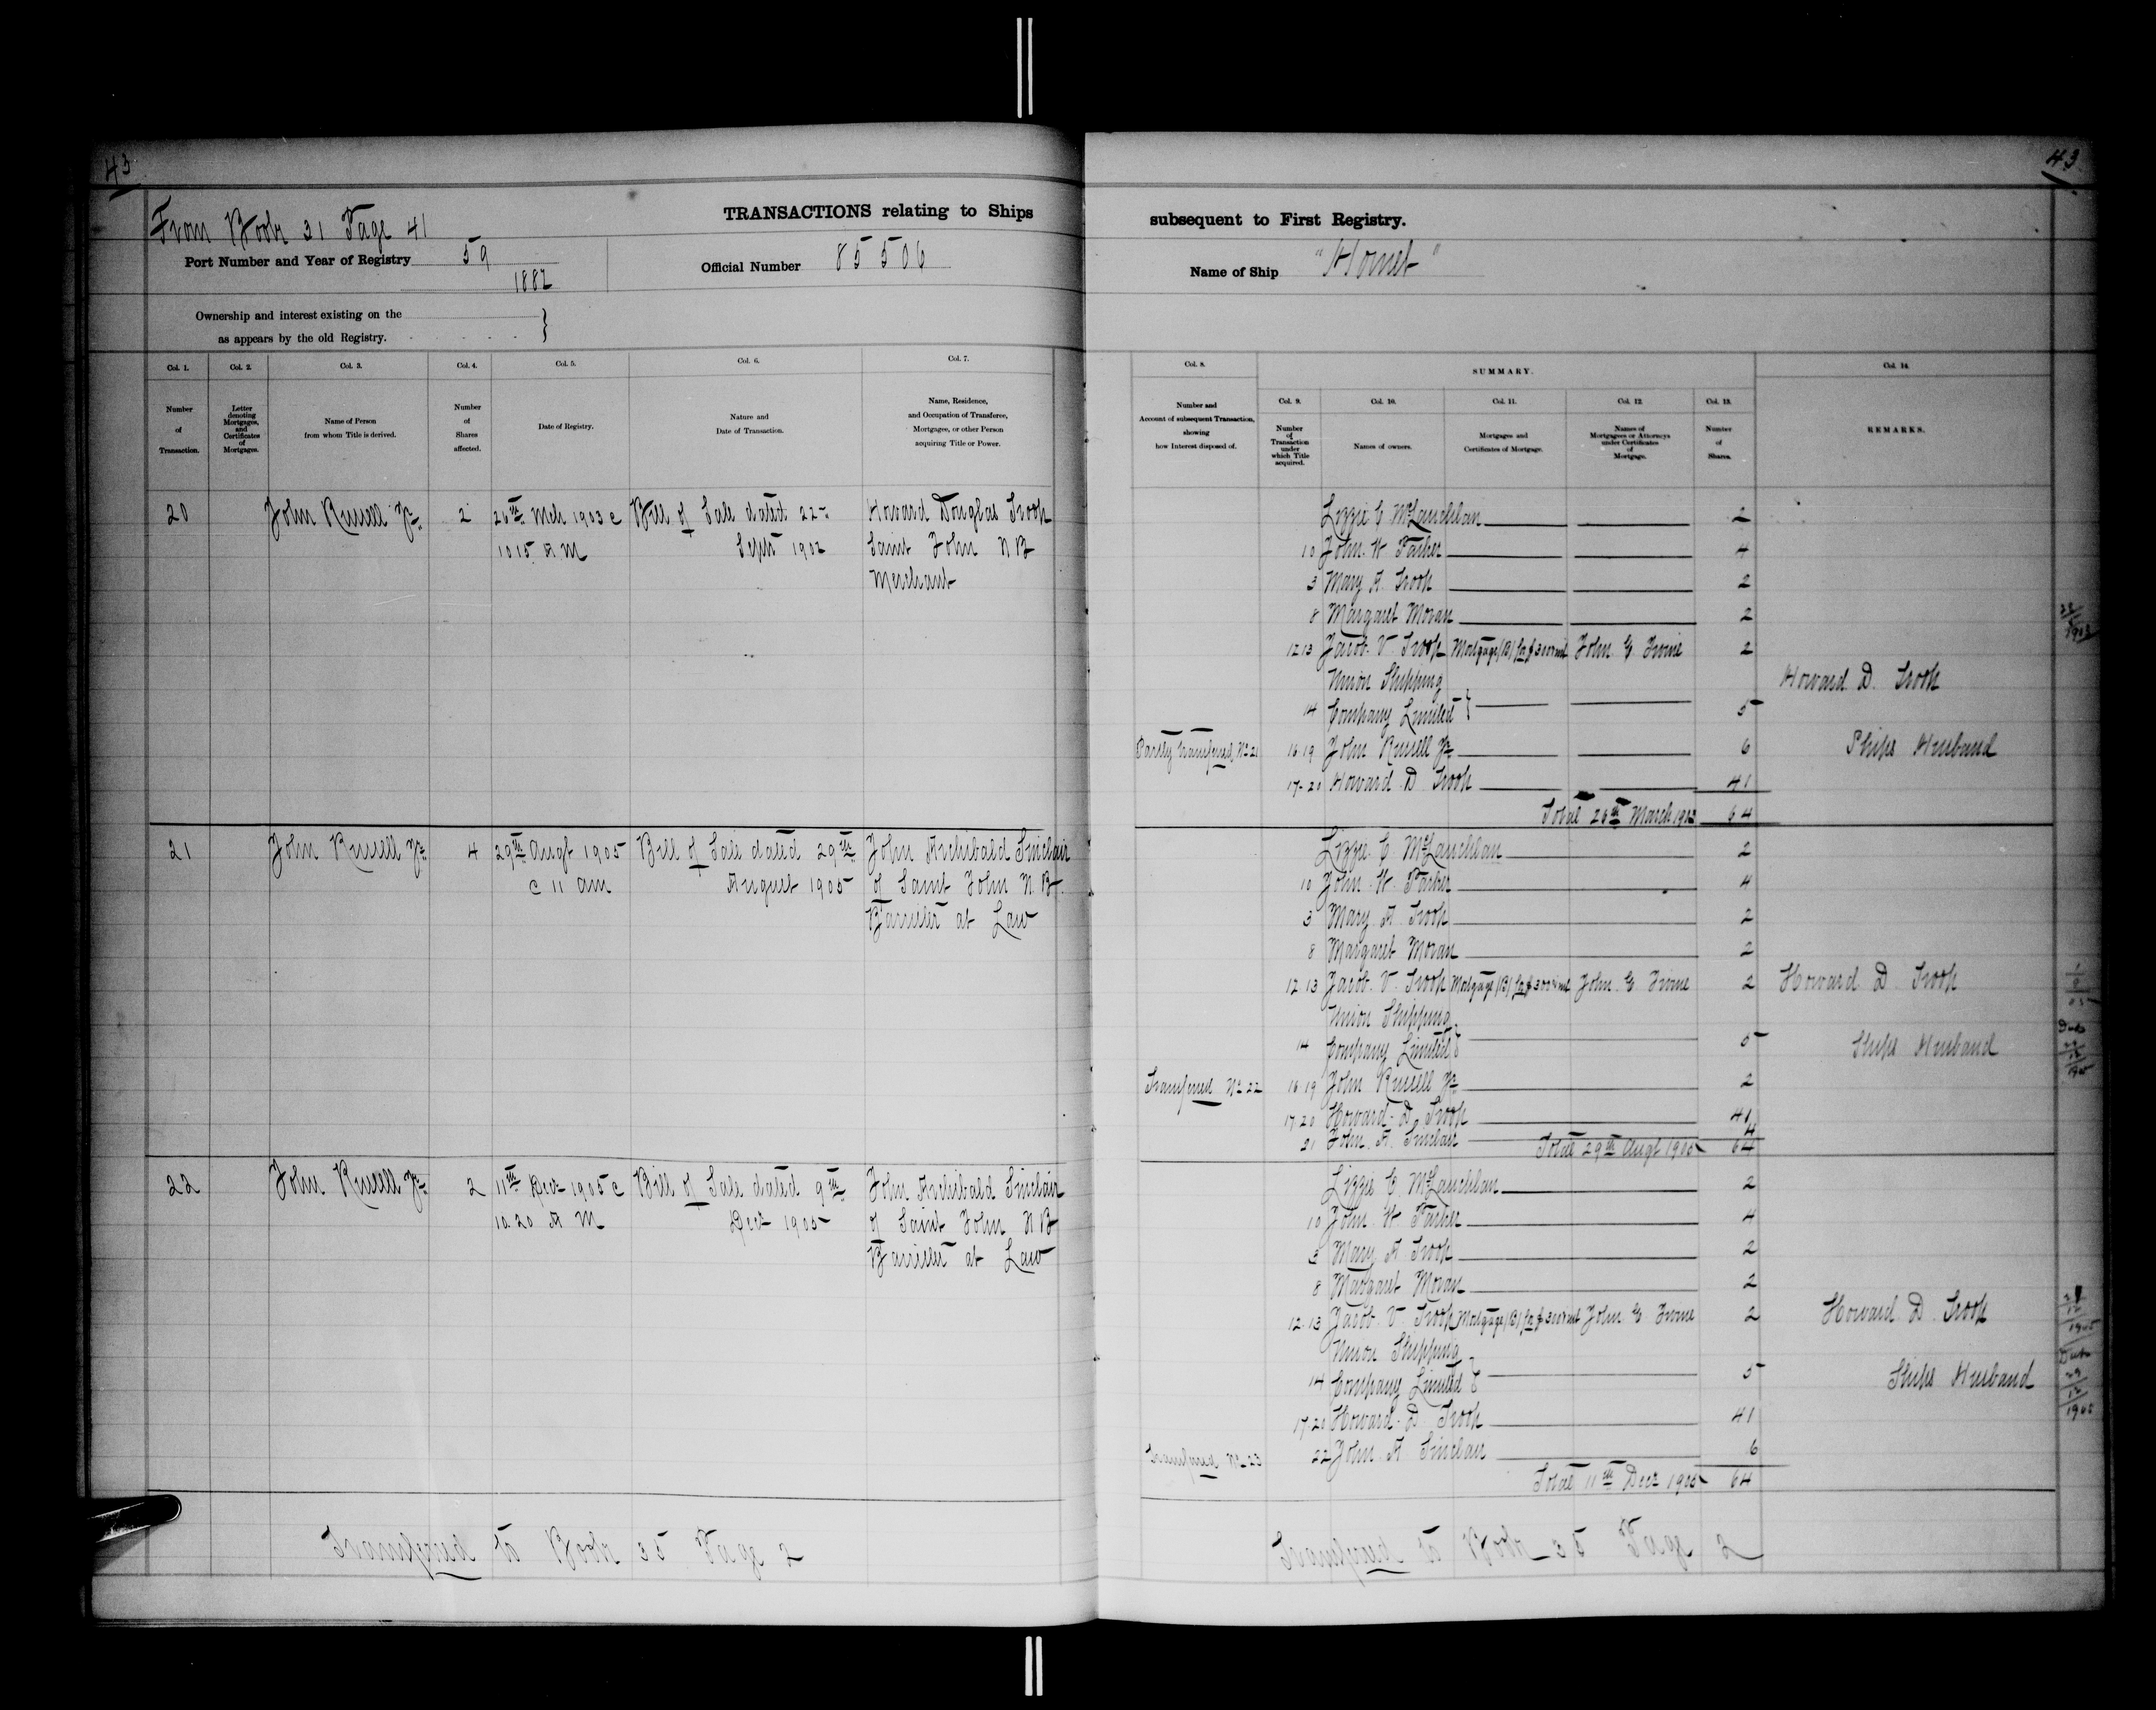 43
43
From Book 31 Page 41
TRANSACTIONS relating to Ships subsequent to First Registry.
Port Number and Year of Registry 59
1882
Official Number 85506
Name of Ship
Ownership and interest existing on the
as appears by the old Registry.
Col. 1. Number of Transaction.
Col. 2. Letter denoting Mortgages, and Certificates of Mortgages.
Col. 3. Name of Person from whom Title is derived.
Col. 4. Number of Shares affected.
Col. 5. Date of Registry.
Col. 6. Nature and Date of Transaction.
Col. 7. Name, Residence, and Occupation of Transferee, Mortgagee, or other Person acquiring Title or Power.
Col. 8. Number and Account of subsequent Transaction, showing how Interest disposed of.
SUMMARY.
Col. 9. Number of Transaction under which Title acquired.
Col. 10. Names of owners.
Col. 11. Mortgages and Certificates of Mortgage.
Col. 12. Names of Mortgagees or Attorneys under Certificates of Mortgage.
Col. 13. Number of Shares.
Col. 14. REMARKS.
20 John Russell Jr 2 26th Mch 1903 @ Bill of Sale dated 22nd Howard Douglas Troop
10 15 A M Septr 1902 Saint John N B
Merchant
Lizzie C McLauchlan 2
10 John W Parker 4
3 Mary A Troop 2
8 Margaret Moran 2
12 13 Jacob V Troop Mortgage (B) John E Irvine 2
Union Shipping
14 Company Limited 5
Howard D Troop
Partly Transferred No 21 16 19 John Russell Jr 6
Ships Husband
17-20 Howard D Troop 41
Total 26th March 1903 64
21 John Russell Jr 4 29th Augt 1905 Bill of Sale dated 29th John Archibald Sinclair
@ 11 am August 1905 of Saint John N.B.
Barrister at Law
Lizzie C McLauchlan 2
10 John W Parker 4
3 Mary A Troop 2
8 Margaret Moran 2
12 13 Jacob V Troop Mortgage (B) John E Irvine 2
Howard D Troop
Union Shipping
14 Company Limited 5
Ships Husband
Transferred No 22 16 19 John Russell Jr 2
17-20 Howard D Troop 41
21 John A Sinclair 4
Total 29th Augt 1905 64
22 John Russell Jr 2 11th Decr 1905 @ Bill of Sale dated 9th John Archibald Sinclair
10.20 A M Decr 1905 of Saint John N B
Barrister at Law
Lizzie C McLauchlan 2
10 John W Parker 4
3 Mary A Troop 2
8 Margaret Moran 2
12-13 Jacob V Troop Mortgage (B) John E Irvine 2
Howard D Troop
Union Shipping
14 Company Limited 5
Ships Husband
17-20 Howard D Troop 41
Transferred No 23 22 John A Sinclair 6
Total 11th Decr 1905 64
Transferred to Book 35 Page 2
Transferred to Book 35 Page 2